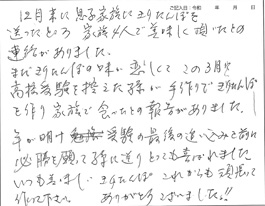 ご記入日：令和　年　月　日
12月末に息子家族にきりたんぽを
送ったところ 家族4人で美味しく頂いたとの
連絡がありました。
またきりたんぽの味が恋しくて この3月で
高校受験を控えた孫が 手作りできりたんぽ
を作り家族で食ったとの報告がありました。
年が明け 受験の最後の追い込み前に
必勝を願って孫に送り とても喜ばれました
いつも美味しい きりたんぽ これからも頑張って
作って下さい。 ありがとうございました!!